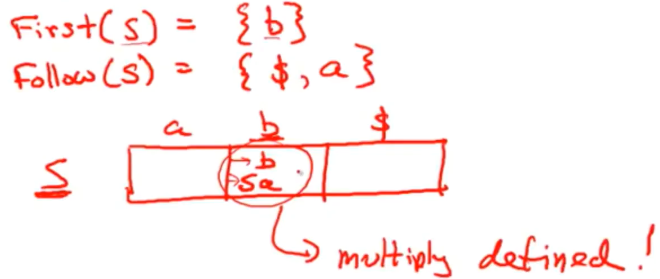 First(S) = {b}
Follow(S) = {$, a}
a b $
S → b
→ Sa
multiply defined!